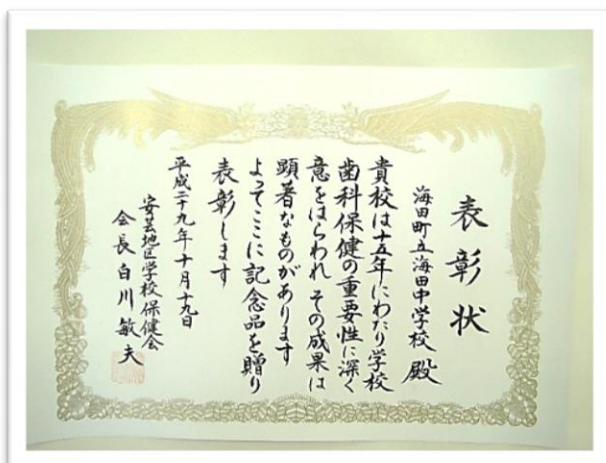 表彰状
海田町立海田中学校 殿
貴校は十五年にわたり学校
歯科保健の重要性に深く
意をはらわれ その成果は
顕著なものがあります
よってここに記念品を贈り
表彰します
平成二十九年十月十九日
安芸地区学校保健会
会長 白川敏夫